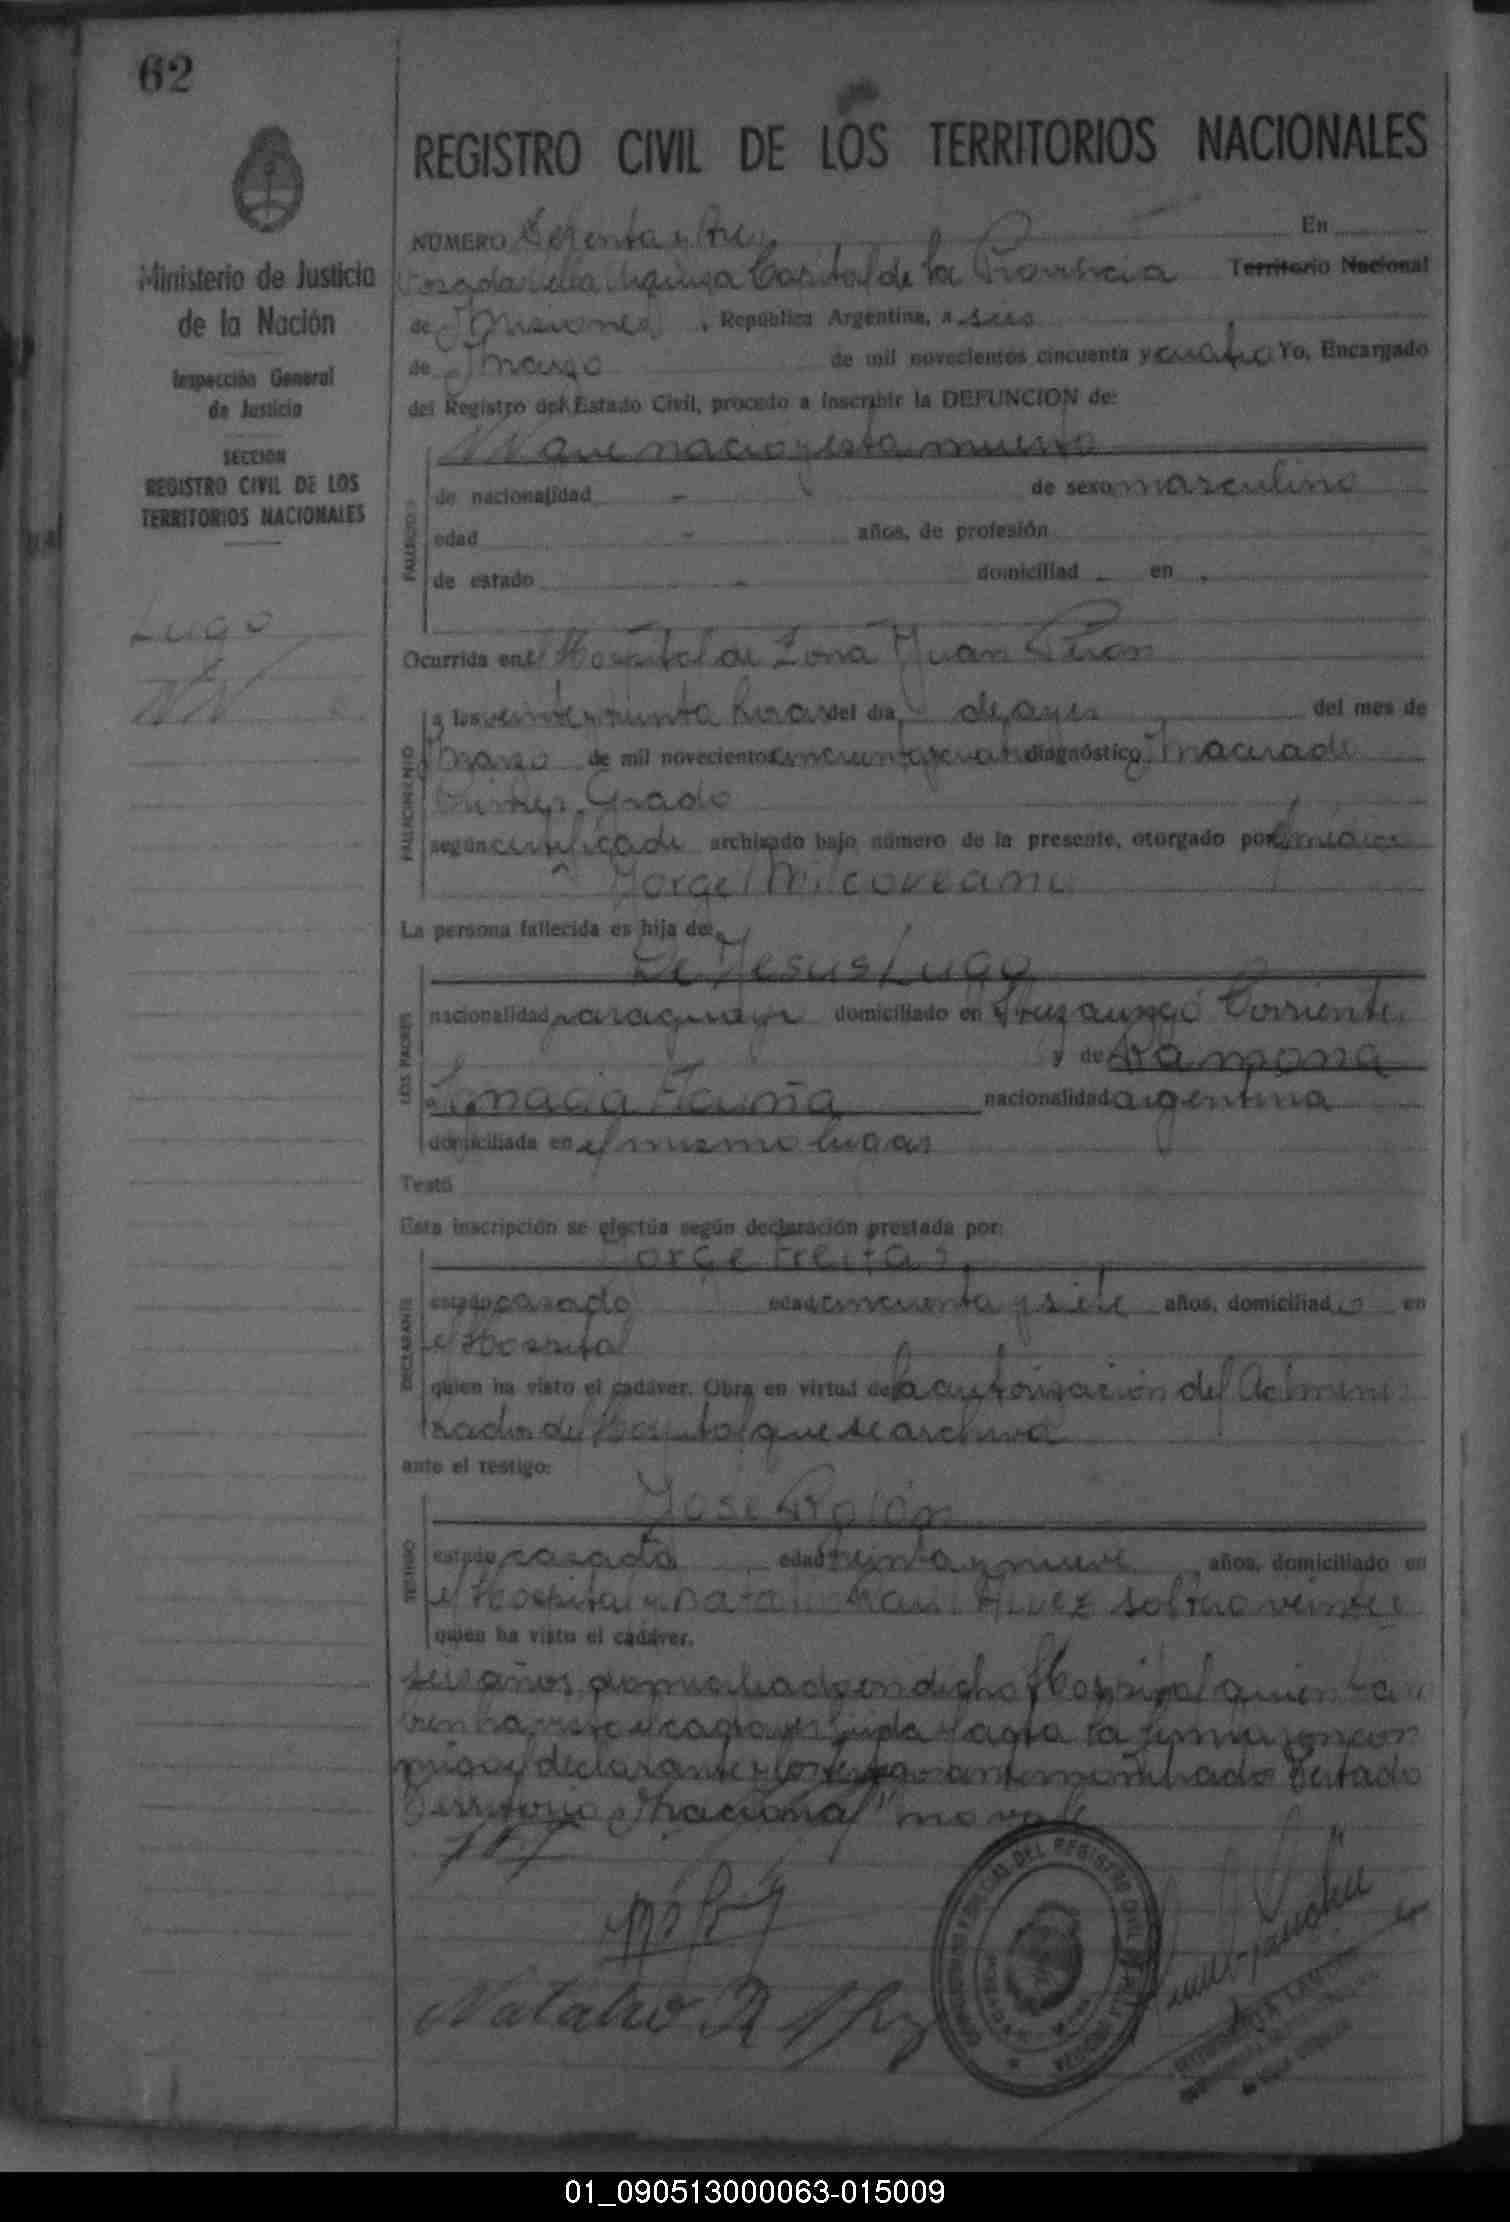 62
REGISTRO CIVIL DE LOS TERRITORIOS NACIONALES
Ministerio de Justicia
de la Nación
Inspección General
de Justicia
SECCION
REGISTRO CIVIL DE LOS
TERRITORIOS NACIONALES
Lugo
NN
NÚMERO y tres En
Posadas Capital de la Provincia Territorio Nacional
de Misiones, República Argentina, a seis
de Marzo de mil novecientos cincuenta y cuatro Yo, Encargado
del Registro del Estado Civil, procedo a inscribir la DEFUNCION de:
NN que nacio y esta muerto
FALLECIDO
de nacionalidad - de sexo masculino
edad - años, de profesión
de estado - domiciliad en
Ocurrida en el Hospital de Zona Juan Peron
FALLECIMIENTO
a las veinte y treinta horas del día de ayer del mes de
Marzo de mil novecientos cincuenta y cuatro diagnóstico Macerado
Primer Grado
según certificado archivado bajo número de la presente, otorgado por
Jorge Milcoveanu
La persona fallecida es hija de:
LOS PADRES
De Jesus Lugo
nacionalidad paraguaya domiciliado en Ituzaingó Corrientes
y de Ramona
Ignacia Acuña nacionalidad argentina
domiciliada en el mismo lugar
Testó
Esta inscripción se efectúa según declaración prestada por:
DECLARANTE
Jorge Freitas
estado casado edad cincuenta y siete años, domiciliado en
el Hospital
quien ha visto el cadáver. Obra en virtud de la autorización del Adminis
trador del Hospital que se archiva
ante el testigo:
TESTIGO
Jose Rolón
estado casado edad treinta y nueve años, domiciliado en
el Hospital y soltero veinte
quien ha visto el cadáver.
seis años domiciliado en dicho Hospital quien tam
bien ha visto el cadaver Leida el acta la firmaron con
migo el declarante y los testigos antenombrado Testado
Territorio Nacional" no vale
Natalio R
01_090513000063-015009